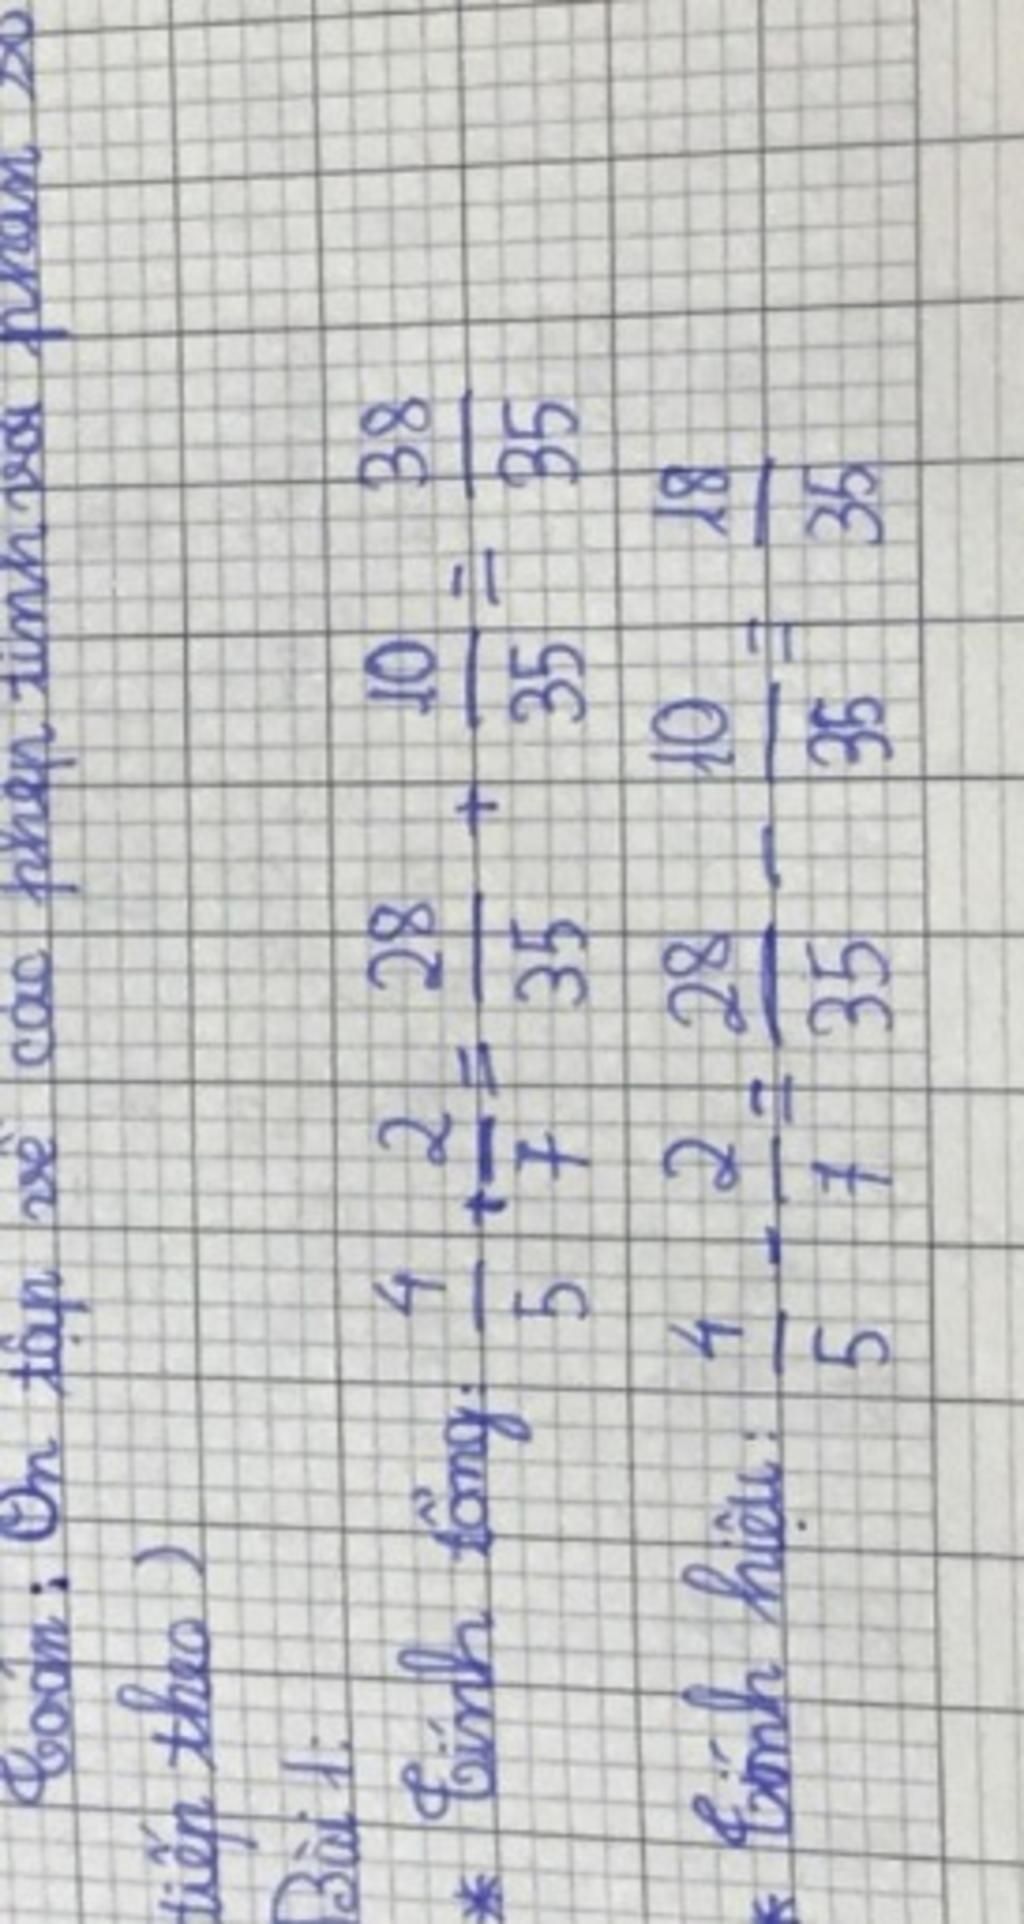 Toán: Ôn tập về các phép tính với phân số
tiếp theo )
Bài 1:
* Tính tổng: 4/5 + 2/7 = 28/35 + 10/35 = 38/35
* Tính hiệu: 4/5 - 2/7 = 28/35 - 10/35 = 18/35